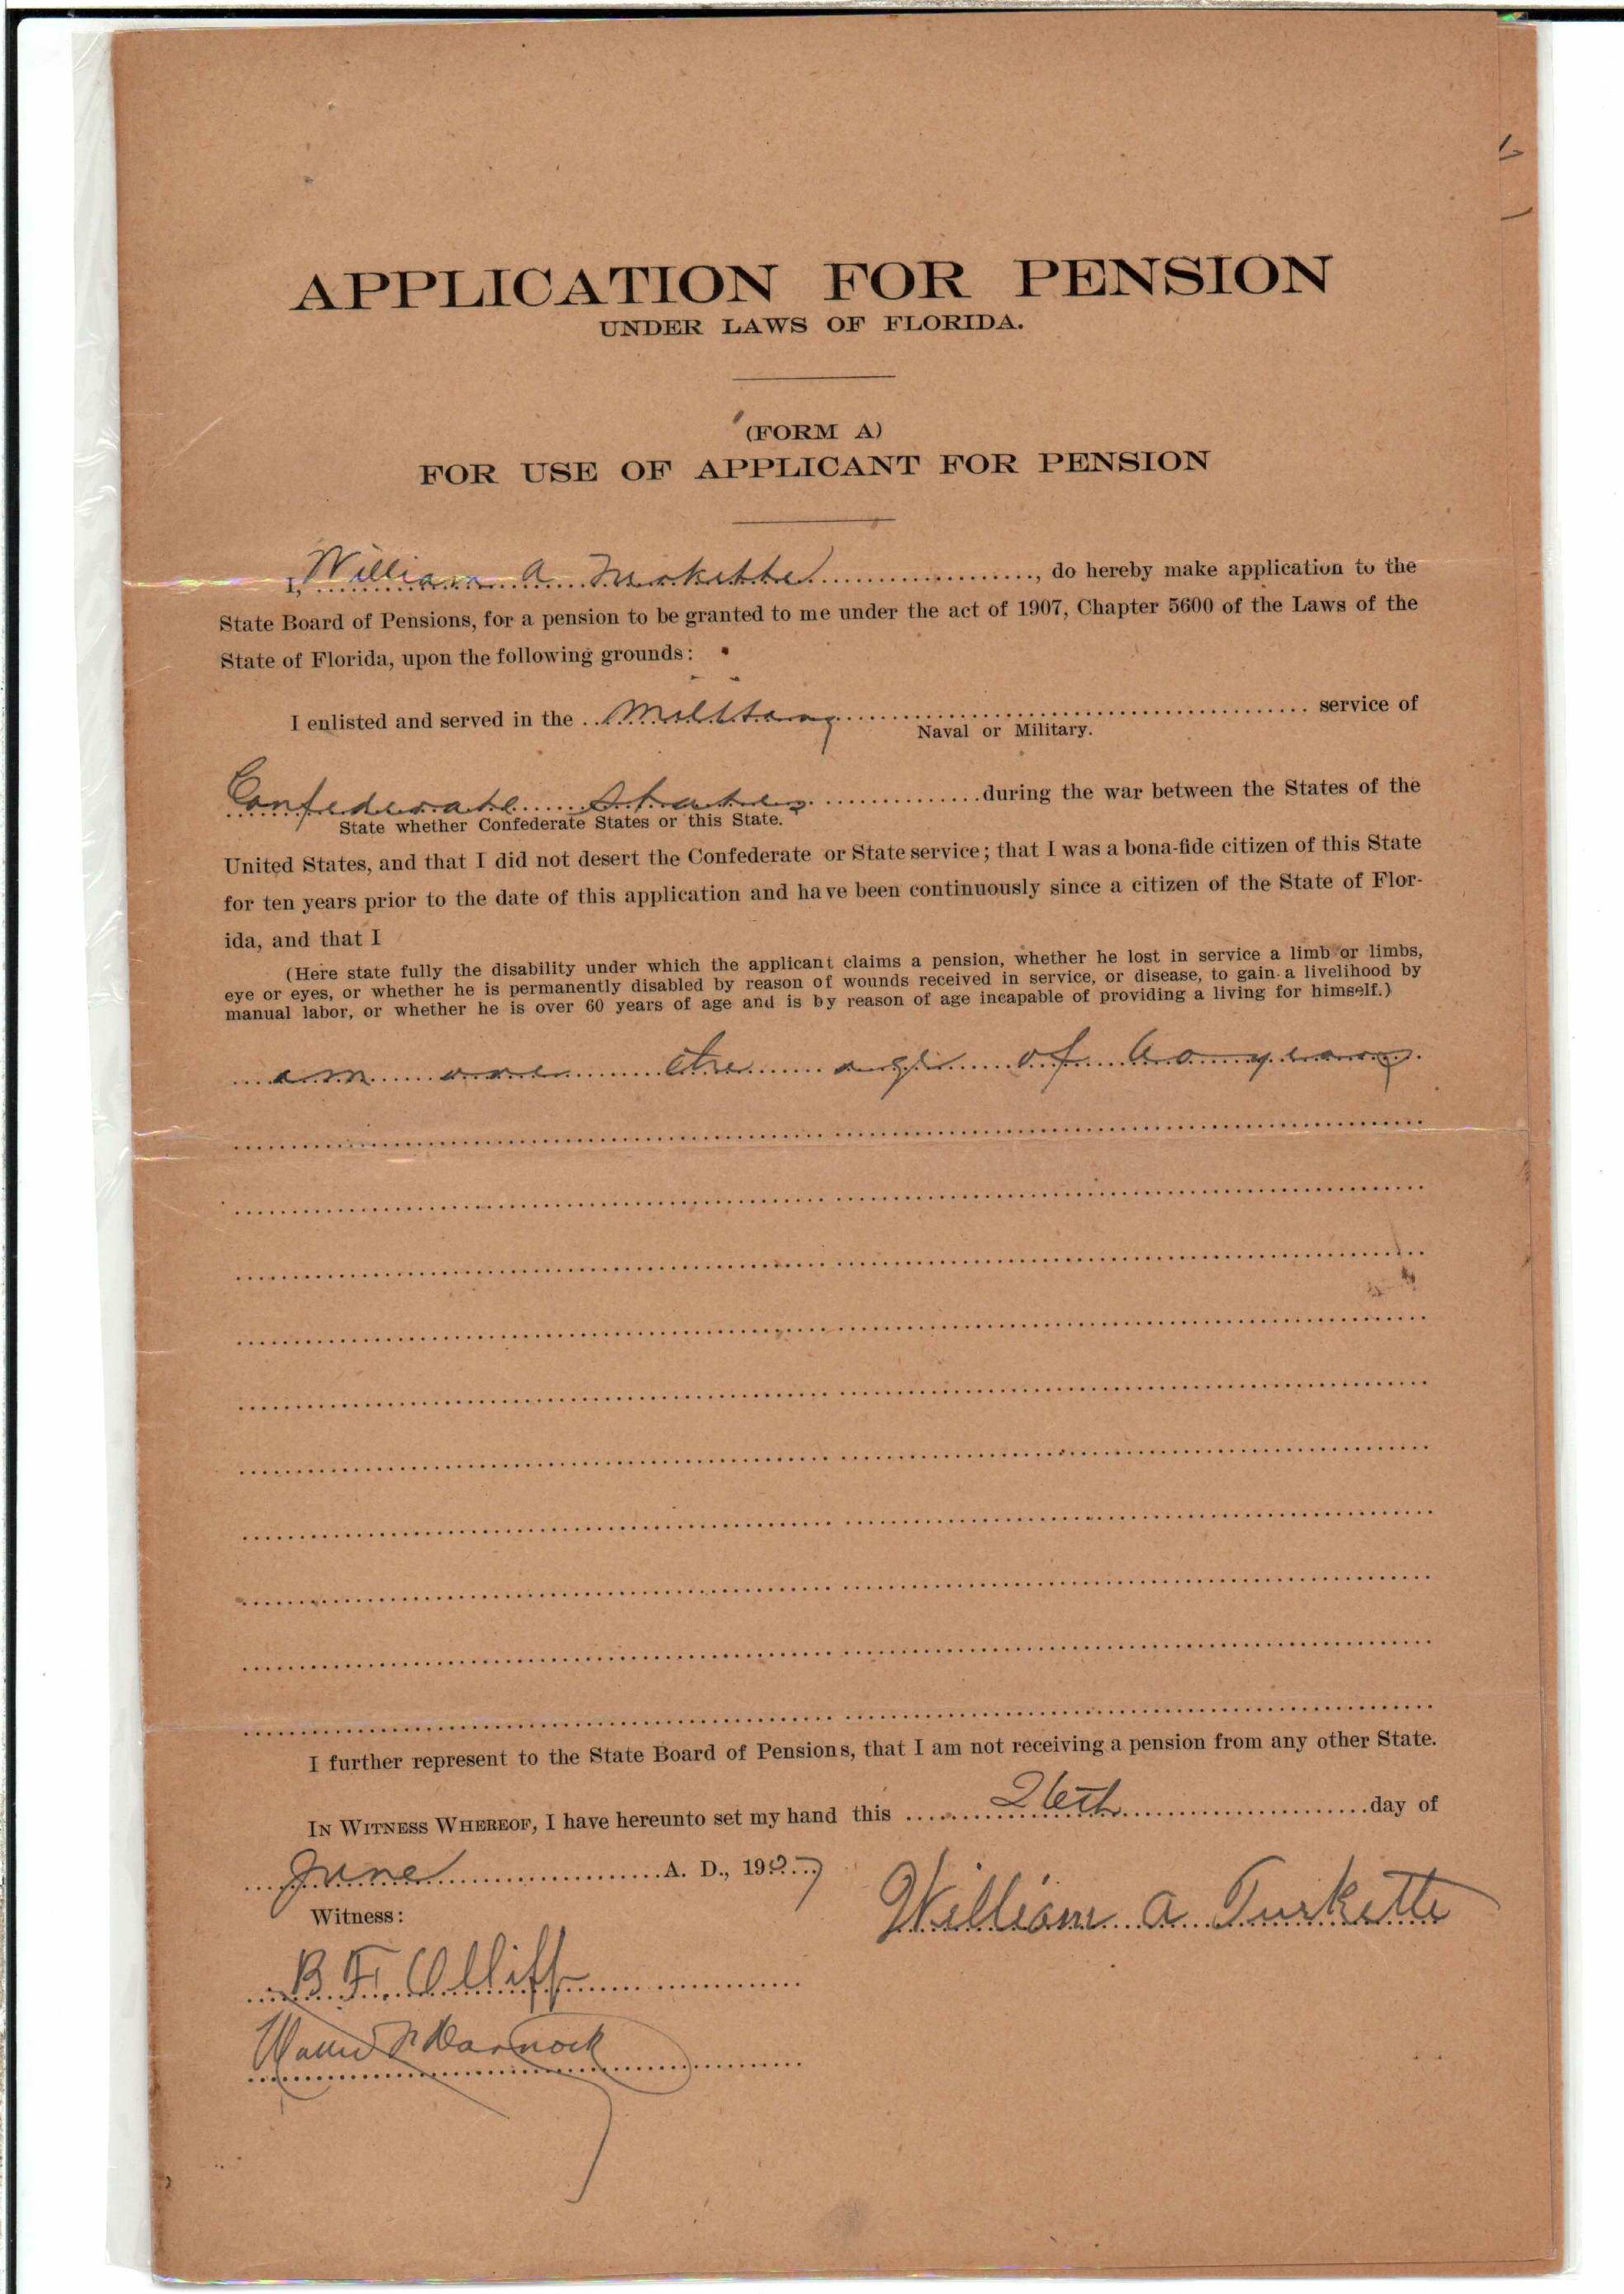 APPLICATION FOR PENSION
UNDER LAWS OF FLORIDA.
(FORM A)
FOR USE OF APPLICANT FOR PENSION
I, William A Turkette, do hereby make application to the
State Board of Pensions, for a pension to be granted to me under the act of 1907, Chapter 5600 of the Laws of the
State of Florida, upon the following grounds:
I enlisted and served in the Military service of
Naval or Military.
Confederate States during the war between the States of the
State whether Confederate States or this State.
United States, and that I did not desert the Confederate or State service; that I was a bona-fide citizen of this State
for ten years prior to the date of this application and have been continuously since a citizen of the State of Flor-
ida, and that I
(Here state fully the disability under which the applicant claims a pension, whether he lost in service a limb or limbs,
eye or eyes, or whether he is permanently disabled by reason of wounds received in service, or disease, to gain a livelihood by
manual labor, or whether he is over 60 years of age and is by reason of age incapable of providing a living for himself.)
am over the age of
I further represent to the State Board of Pensions, that I am not receiving a pension from any other State.
IN WITNESS WHEREOF, I have hereunto set my hand this 26th day of
June A. D., 1907
William A Turkette
Witness:
B. F. Olliff